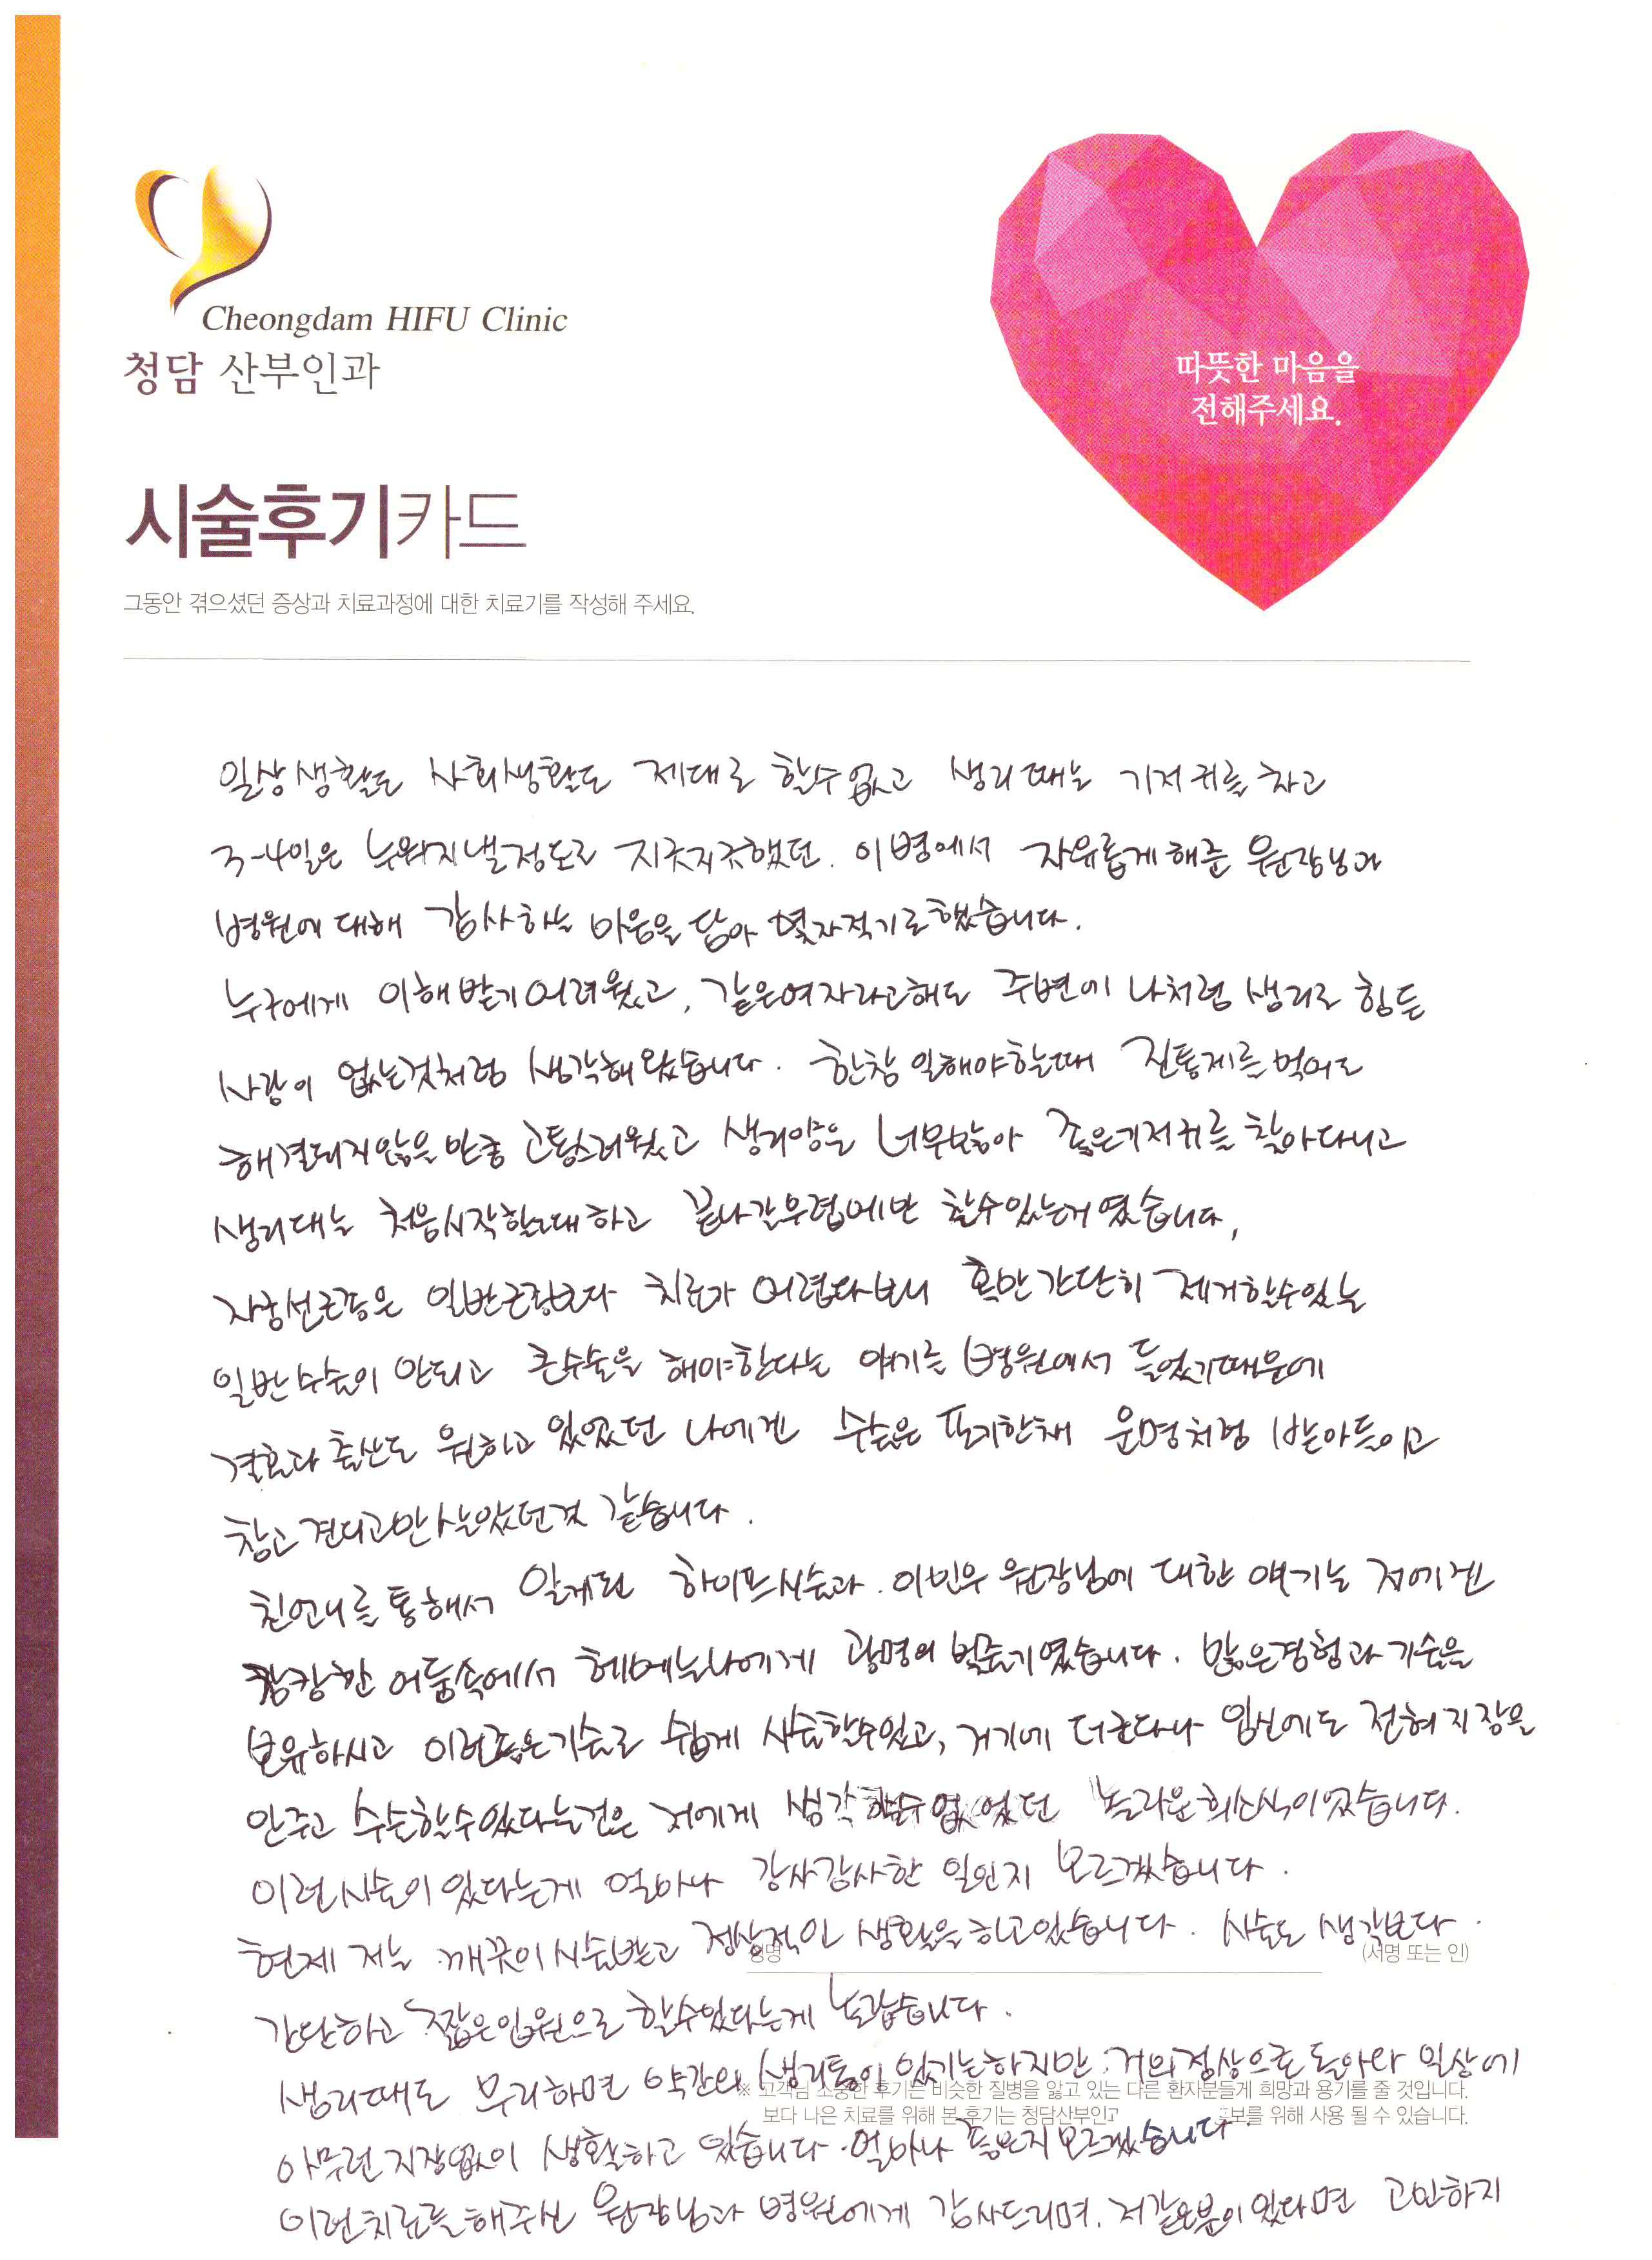 Cheongdam HIFU Clinic
청담 산부인과
따뜻한 마음을
전해주세요.
시술후기카드
그동안 겪으셨던 증상과 치료과정에 대한 치료기를 작성해 주세요.
일상생활도 사회생활도 제대로 할수없고 생리때는 기저귀를 차고
3-4일은 누워지낼정도로 지긋지긋했던. 이병에서 자유롭게해준 원장님과
병원에 대해 감사하는 마음을 담아 몇자적기로했습니다.
누구에게 이해받기어려웠고, 같은여자라고해도 주변에 나처럼 생리로 힘든
사람이 없는것처럼 생각해왔습니다. 한참 일해야할때 진통제를 먹어도
해결되지않을만큼 고통스러웠고 생리양은 너무많아 좋은기저귀를 찾아다니고
생리대는 처음시작할때하고 끝나갈무렵에만 할수있는거였습니다,
자궁선근증은 일반근종보다 치료가 어렵다보니 혹만간단히 제거할수있는
일반수술이 안되고 큰수술을 해야한다는 얘기를 병원에서 들었기때문에
결혼과 출산도 원하고 있었던 나에겐 수술은 포기한채 운명처럼 받아들이고
참고 견디고만살았던것 같습니다.
친언니를 통해서 알게된 하이프시술과. 이민우 원장님에 대한 얘기는 저에겐
캄캄한 어둠속에서 헤메는나에게 광명의 빛줄기였습니다. 많은경험과 기술을
보유하시고 이런좋은기술로 쉽게 시술할수있고, 거기에 더군다나 임신에도 전혀지장을
안주고 수술할수있다는것은 저에게 생각할수없었던 놀라운희소식이였습니다.
이런시술이 있다는게 얼마나 감사감사한 일인지 모르겠습니다.
현제 저는 깨끗이시술받고 정상적인 생활을하고있습니다. 시술도 생각보다
성명
(서명 또는 인)
간단하고 짧은입원으로 할수있다는게 놀랍습니다.
생리때도 무리하면 약간의 생리통이 있기는하지만 거의정상으로 돌아와 일상에
※ 고객님 소중한 후기는 비슷한 질병을 앓고 있는 다른 환자분들게 희망과 용기를 줄 것입니다.
보다 나은 치료를 위해 본 후기는 청담산부인과 홍보를 위해 사용 될 수 있습니다.
아무런지장없이 생활하고 있습니다. 얼마나 좋은지모르겠습니다.
이런치료를해주신 원장님과 병원에게 감사드리며. 저같은분이있다면 고민하지